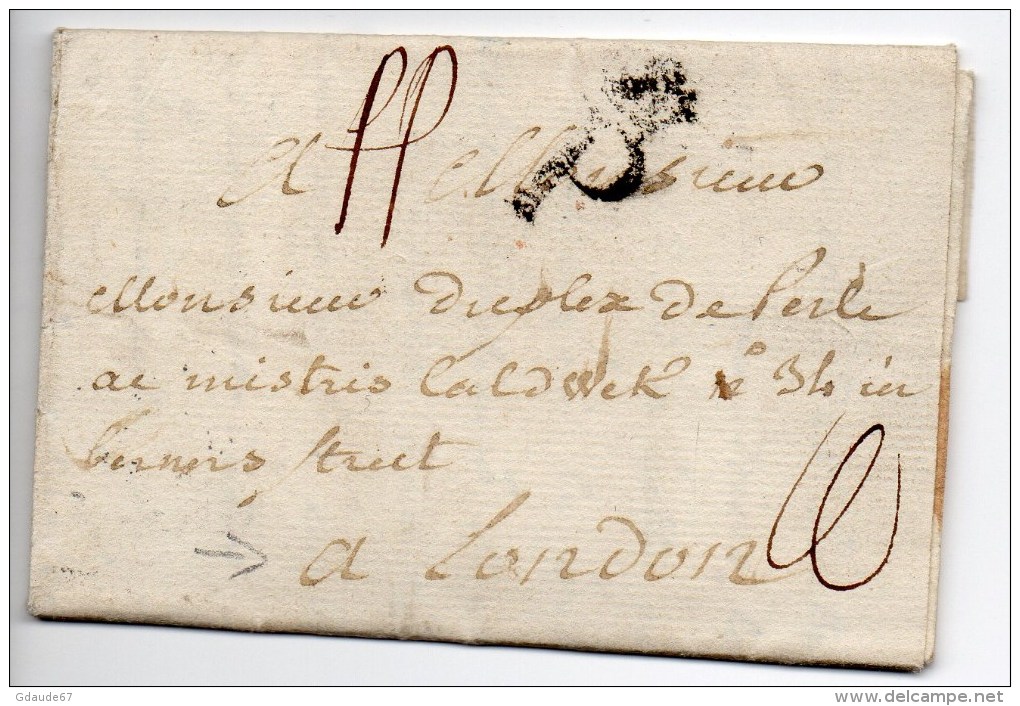 A Monsieur
Monsieur Dupleix de Perle
at mistris Caldwek n° 34 in
berners street
a London
Gdaude67
delcampe.net